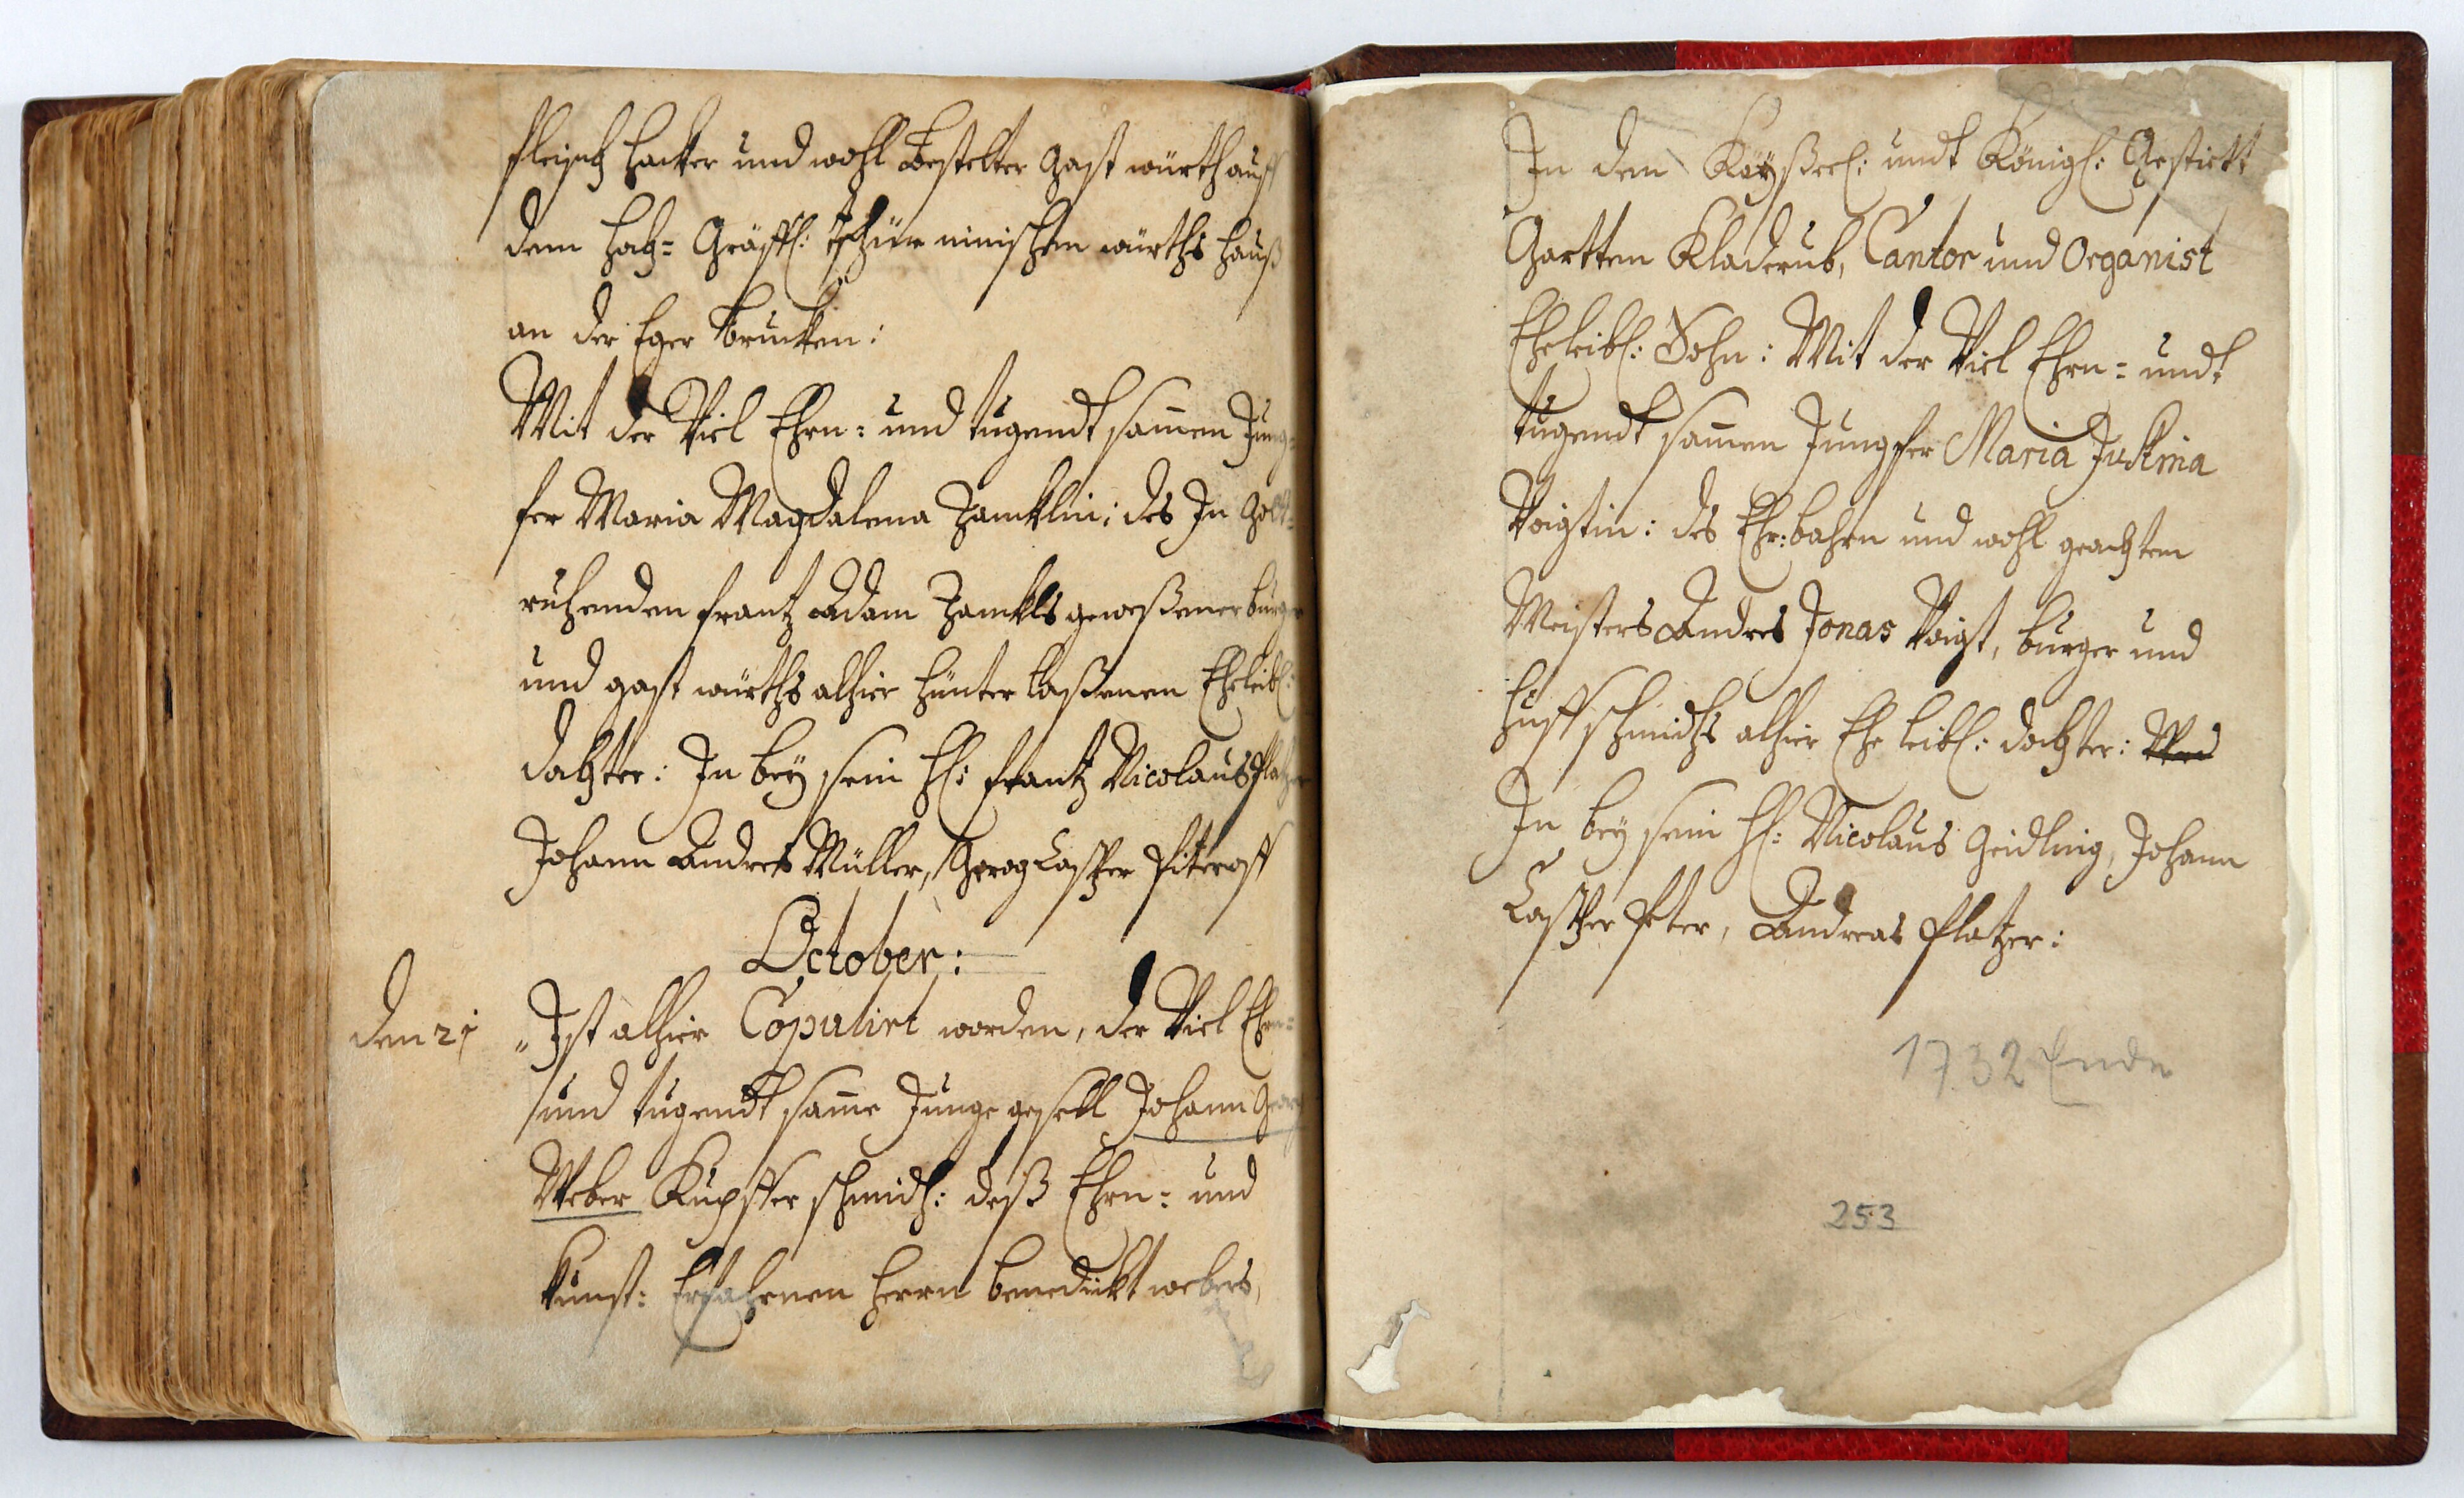 fleisch hacker und wohl Bestelter gast würth auff
dem hoch= Gräffl: würths hauß
an der Eger brucken:
Mit der Viel Ehrn= und tugendt samen Jung=
fer Maria Magdalena Zancklin: des In Gott=
ruhenden frantz Adam Zanckls geweßener burger
und gast würths alhier hünter laßenen Eheleibl:
dochter: In bey sein H: frantz Nicolaus Platzer
Johann Andres Müller, Georg Casper Piteroff
October:
den 21 „ Ist alhier Copulirt worden, der Viel Ehrn=
und tugendt same Junge gesell Johann Georg
Weber Kupffer schmidt: deß Ehrn= und
kunst: Erfahrnen Herrn benedickt webers,
In dem Kayßerl: undt Königl: Gestiett
Gartten Kladerub, Cantor und Organist
Eheleibl: Sohn: Mit der Viel Ehrn= undt
tugendt samen Jungfer Maria Justina
Voigtin: des Ehr:bahrn und wohl geachten
Meisters Andres Jonas Voigt, burger und
Huffschmidts alhier Ehe leibl: dochter:
In bey sein H: Nicolaus Geidling, Johann
Casper Peter, Andreas Platzer:
1732 Ende
253